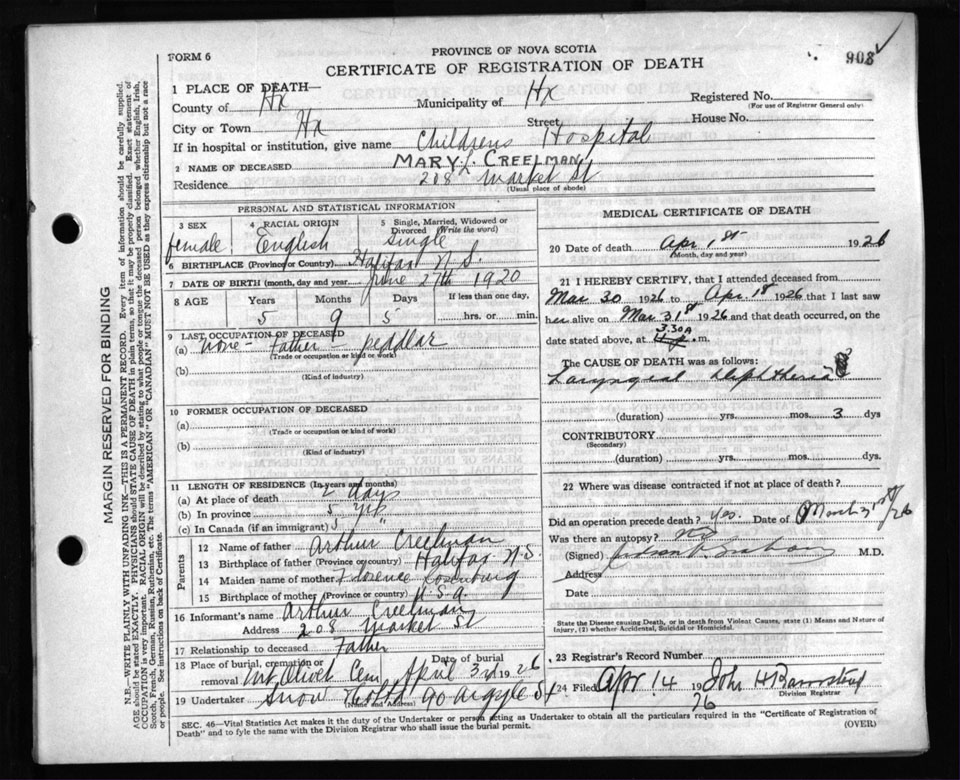 FORM 6
PROVINCE OF NOVA SCOTIA
CERTIFICATE OF REGISTRATION OF DEATH
908
1 PLACE OF DEATH—
County of Hx Municipality of Hx Registered No.
(For use of Registrar General only)
City or Town Hx Street House No.
If in hospital or institution, give name Childrens Hospital
2 NAME OF DECEASED MARY L. CREELMAN
Residence 208 Market St
(Usual place of abode)
PERSONAL AND STATISTICAL INFORMATION
3 SEX 4 RACIAL ORIGIN 5 Single, Married, Widowed or Divorced (Write the word)
female English single
6 BIRTHPLACE (Province or Country) Halifax N.S.
7 DATE OF BIRTH (month, day and year) June 27th 1920
8 AGE Years Months Days If less than one day,
5 9 5 hrs. or min.
9 LAST OCCUPATION OF DECEASED
(a) none - Father - peddlar
(Trade or occupation or kind of work)
(b)
(Kind of industry)
10 FORMER OCCUPATION OF DECEASED
(a)
(Trade or occupation or kind of work)
(b)
(Kind of industry)
11 LENGTH OF RESIDENCE (In years and months)
(a) At place of death 2 days
(b) In province 5 yrs
(c) In Canada (if an immigrant) 5 "
Parents
12 Name of father Arthur Creelman
13 Birthplace of father (Province or country) Halifax N.S.
14 Maiden name of mother Florence Rosenburg
15 Birthplace of mother (Province or country) U.S.A.
16 Informant's name Arthur Creelman
Address 208 Market St
17 Relationship to deceased Father
18 Place of burial, cremation or removal Mt Olivet Cem Date of burial April 3rd 1926
19 Undertaker Snow Holts 90 Argyle St
(Name and Address)
MEDICAL CERTIFICATE OF DEATH
20 Date of death Apr 1st 1926
(Month, day and year)
21 I HEREBY CERTIFY, that I attended deceased from
Mar 30 1926 to Apr. 1st 1926 that I last saw
her alive on Mar 31st 1926 and that death occurred, on
3.30A
date stated above, at m.
The CAUSE OF DEATH was as follows:
Laryngeal Diphtheria
(duration) yrs. mos. 3 dys
CONTRIBUTORY
(Secondary)
(duration) yrs. mos. dys.
22 Where was disease contracted if not at place of death?
Did an operation precede death? yes. Date of March 31st/26
Was there an autopsy? no
(Signed) M.D.
Address
Date
State the Disease causing Death, or in death from Violent Causes, state (1) Means and Nature of
Injury, (2) whether Accidental, Suicidal or Homicidal.
23 Registrar's Record Number
24 Filed Apr 14 1926 John H Barnstead
Division Registrar
SEC. 46—Vital Statistics Act makes it the duty of the Undertaker or person acting as Undertaker to obtain all the particulars required in the "Certificate of Registration of
Death" and to fyle the same with the Division Registrar who shall issue the burial permit.
(OVER)
MARGIN RESERVED FOR BINDING
N.B.—WRITE PLAINLY WITH UNFADING INK—THIS IS A PERMANENT RECORD. Every item of information should be carefully supplied.
AGE should be stated EXACTLY. PHYSICIANS should STATE CAUSE OF DEATH in plain terms, so that it may be properly classified. Exact statement of
OCCUPATION is very important. RACIAL ORIGIN will be described by stating to what people or tongue the deceased person belonged whether English, Irish,
Scotch, French, German, Russian, Ruthenian, etc. The terms "AMERICAN" OR "CANADIAN" MUST NOT BE USED as they express citizenship but not a race
or people. See instructions on back of Certificate.